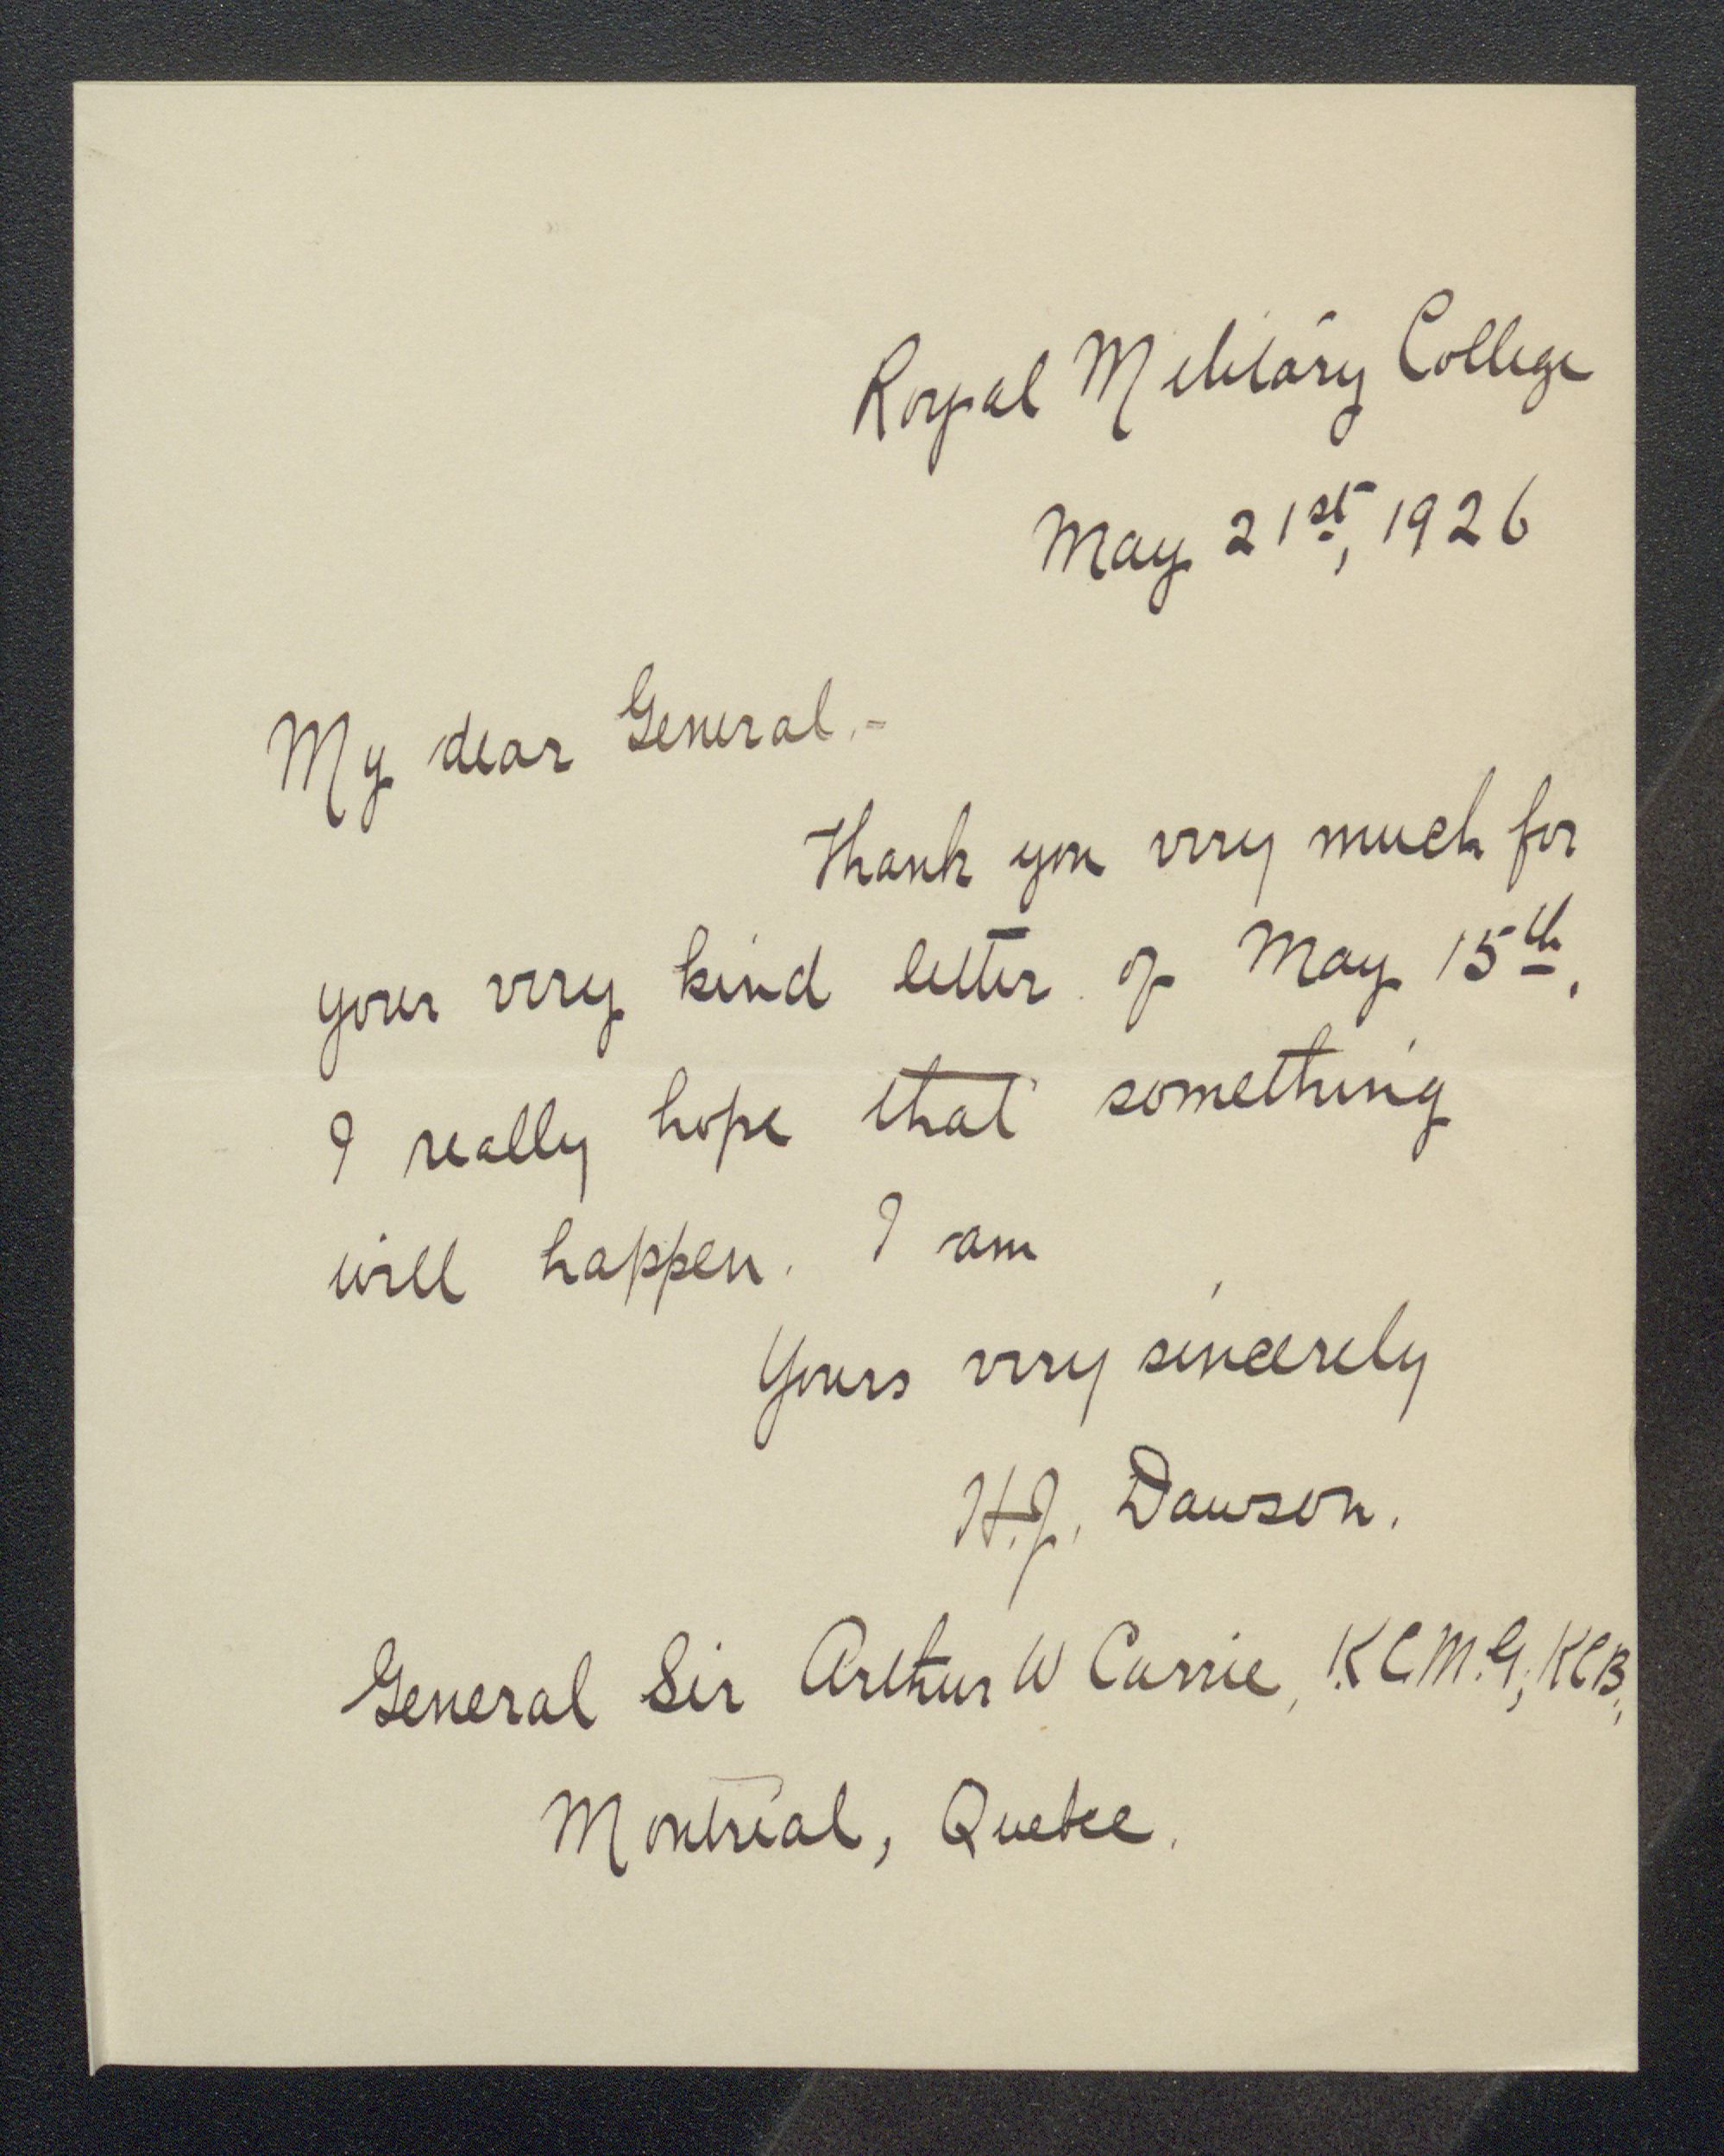 Royal Military College
May 21st, 1926
My dear General.-
Thank you very much for
your very kind letter of May 15th.
I really hope that something
will happen. I am
Yours very sincerely
H.J. Dawson.
General Sir Arthur W Currie, K.C.M.G., KCB,
Montreal, Quebec.